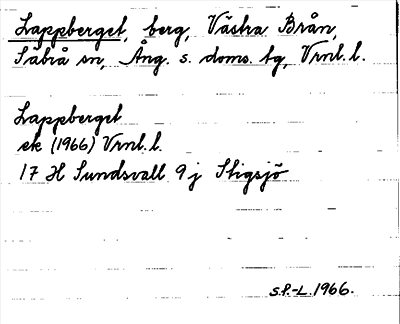 Lappberget, berg, Västra Brån,
Säbrå sn, Ång. s. doms. tg, Vrnl. l.
Lappberget
ek (1966) Vrnl. l.
17 H Sundsvall 9 j Stigsjö
S.P.-L. 1966.